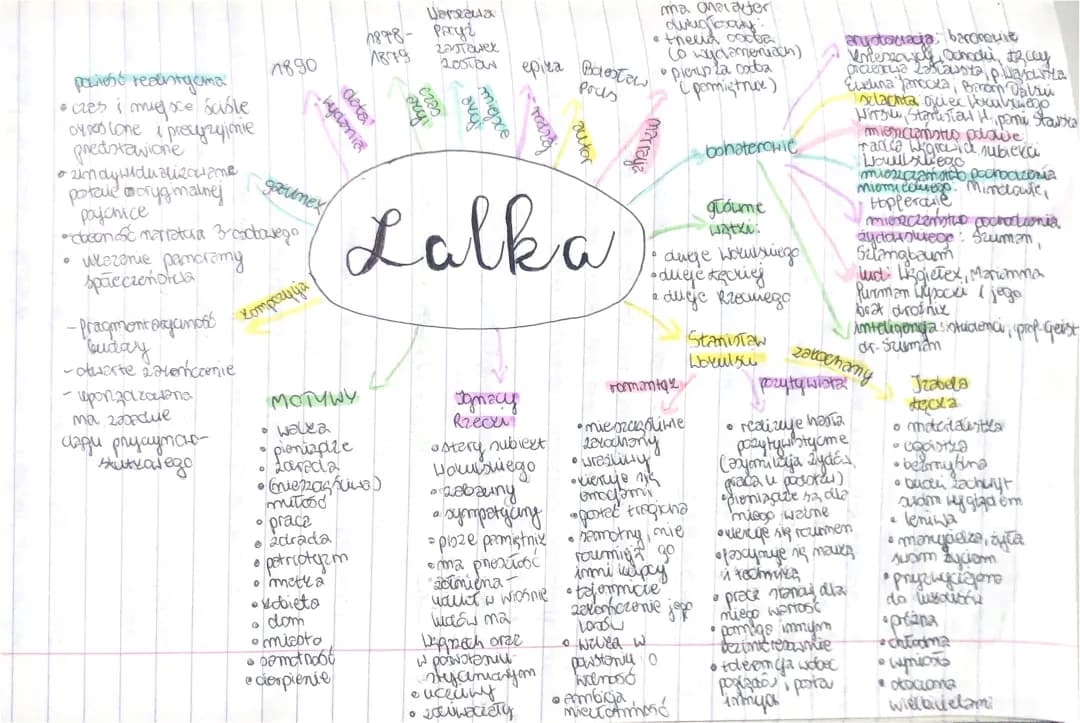 Lalka
1890
data wydania
1878-
1879
czas akcji
Warszawa
Paryż
Zasławek
miejsce akcji
epika
rodzaj
Bolesław
Prus
autor
ma charakter
dwugłosowy:
• trzecia osoba
(o wydarzeniach)
• pierwsza osoba
(pamiętnik)
narracja
gatunek
powieść realistyczna
• czas i miejsce ściśle
określone i precyzyjnie
przedstawione
• zindywidualizowane
postacie o oryginalnej
psychice
• obecność narratora 3-osobowego
• ukazanie panoramy
społeczeństwa
kompozycja
- fragmentaryczność
fabuły
- otwarte zakończenie
- uporządkowana
na zasadzie
ciągu przyczynowo-
skutkowego
bohaterowie
arystokracja: baronowie
Krzeszowscy, Ochocki, Łęccy
prezesowa Zasławska, p. Wąsowska
Ewelina Janocka, Baron Dalski
szlachta: ojciec Wokulskiego
Wirski, Stanisław W, pani Stawska
mieszczaństwo polskie:
radca Węgrowicz, subiekci
Wokulskiego
mieszczaństwo pochodzenia
niemieckiego: Minclowie,
Hopferowie
mieszczaństwo pochodzenia
żydowskiego: Szuman,
Szlangbaum
lud: Węgiełek, Marianna
furman Wysocki i jego
brat dróżnik
inteligencja: studenci, prof. Geist
dr. Szuman
główne
wątki:
• dzieje Wokulskiego
• dzieje Łęckiej
• dzieje Rzeckiego
MOTYWY
• walka
• pieniądze
• zdrada
• (nieszczęśliwa)
miłość
• praca
• zdrada
• patriotyzm
• matka
• kobieta
• dom
• miasto
• samotność
• cierpienie
Ignacy
Rzecki
• stary subiekt
Wokulskiego
• zabawny
• sympatyczny
• pisze pamiętnik
• ma przeszłość
żołnierza -
walczył w wiośnie
ludów na
Węgrzech oraz
w powstaniu
styczniowym
• uczciwy
• zdziwaczały
Stanisław
Wokulski
romantyk
• nieszczęśliwie
zakochany
• wrażliwy
• kieruje się
emocjami
• postać tragiczna
• samotny, nie
rozumieją go
inni kupcy
• tajemnicze
zakończenie jego
losów
• walka w
powstaniu o
wolność
• ambicja
nieustanność
pozytywista
• realizuje hasła
pozytywistyczne
(asymilacja Żydów,
praca u podstaw)
• pieniądze są dla
niego ważne
• kieruje się rozumem
• fascynuje się nauką
i techniką
• praca stanowi dla
niego wartość
• pomaga innym
bezinteresownie
• tolerancja wobec
poglądów i postaw
innych
zakochany
Izabela
Łęcka
• materialistka
• egoistka
• bezmyślna
• budzi zachwyt
swoim wyglądem
• leniwa
• marzycielka, żyła
swoim życiem
• przyzwyczajona
do luksusów
• próżna
• chłodna
• wyniosła
• otoczona
wielbicielami